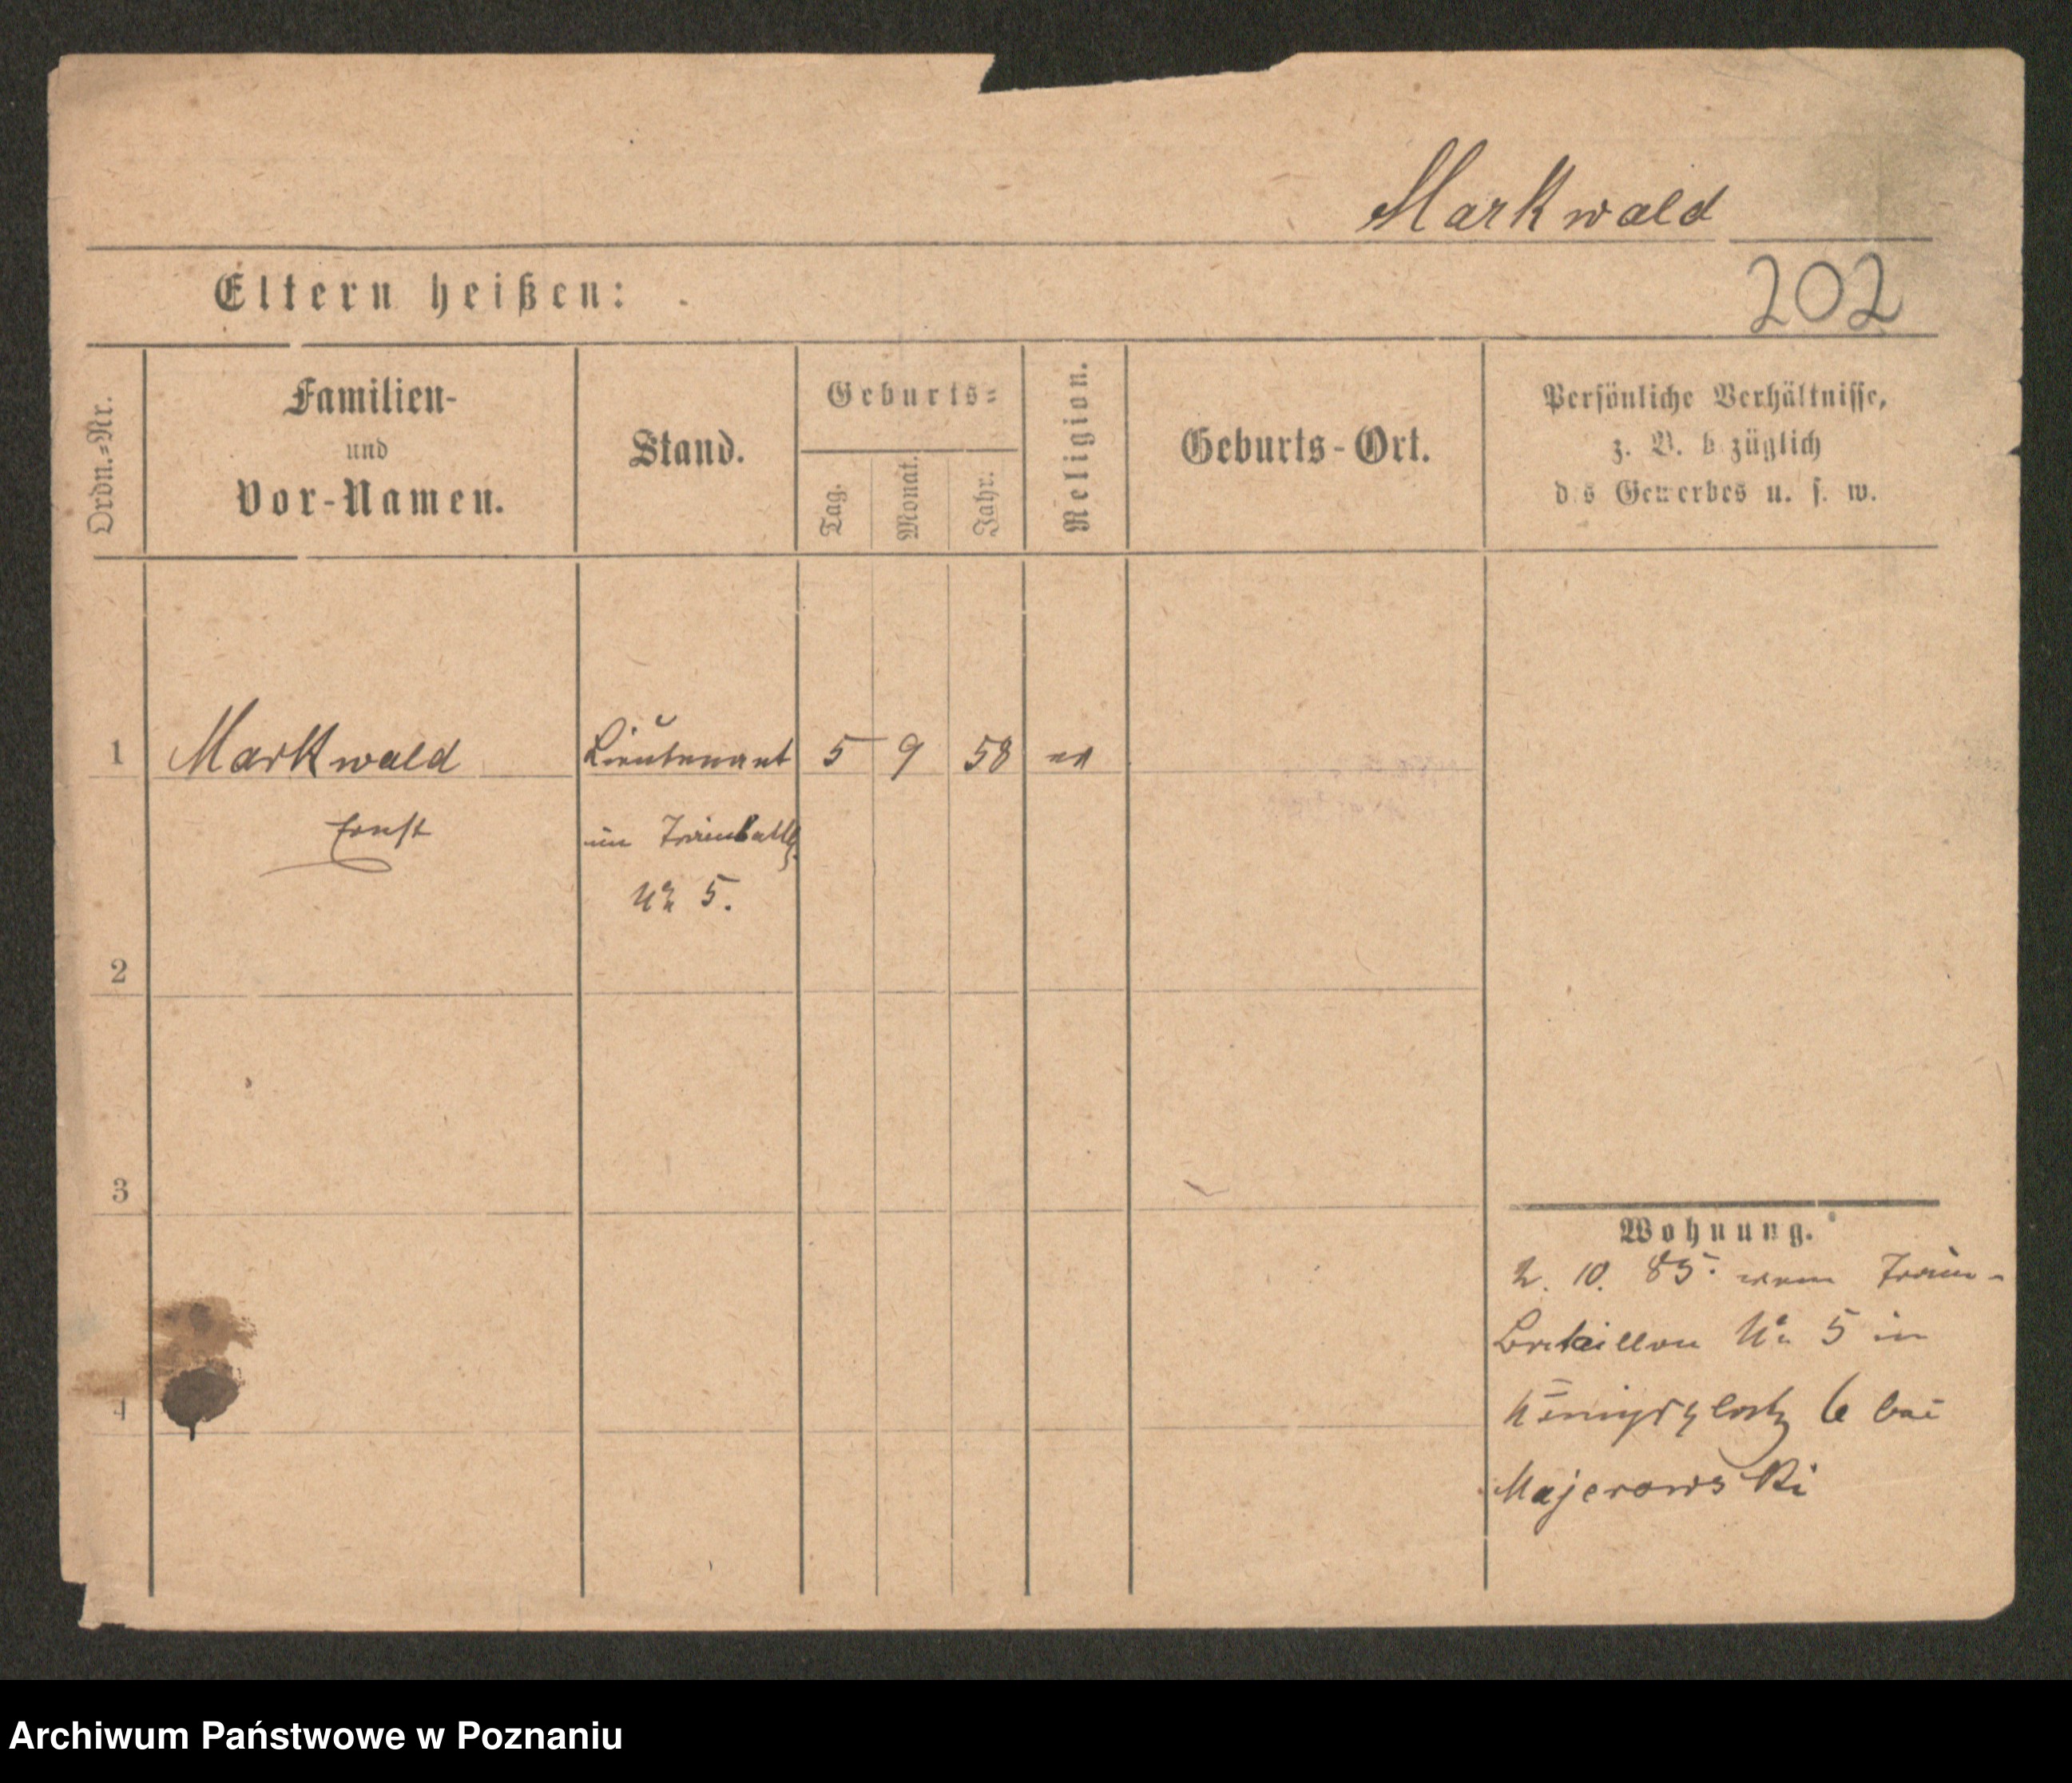 Markwald
202
Eltern heißen:
Ordn.-Nr.
Familien-
und
Vor-Namen.
Stand.
Geburts-
Tag.
Monat.
Jahr.
Religion.
Geburts-Ort.
Persönliche Verhältnisse,
z. B. bezüglich
des Gewerbes u. s. w.
1 Markwald Lieutenant 5 9 58
Ernst im Trainbattl.
No 5.
2
3
4
Wohnung.
2. 10. 85. vom Train-
Bataillon No 5 in
Königsplatz 6 bei
Majerowski
Archiwum Państwowe w Poznaniu